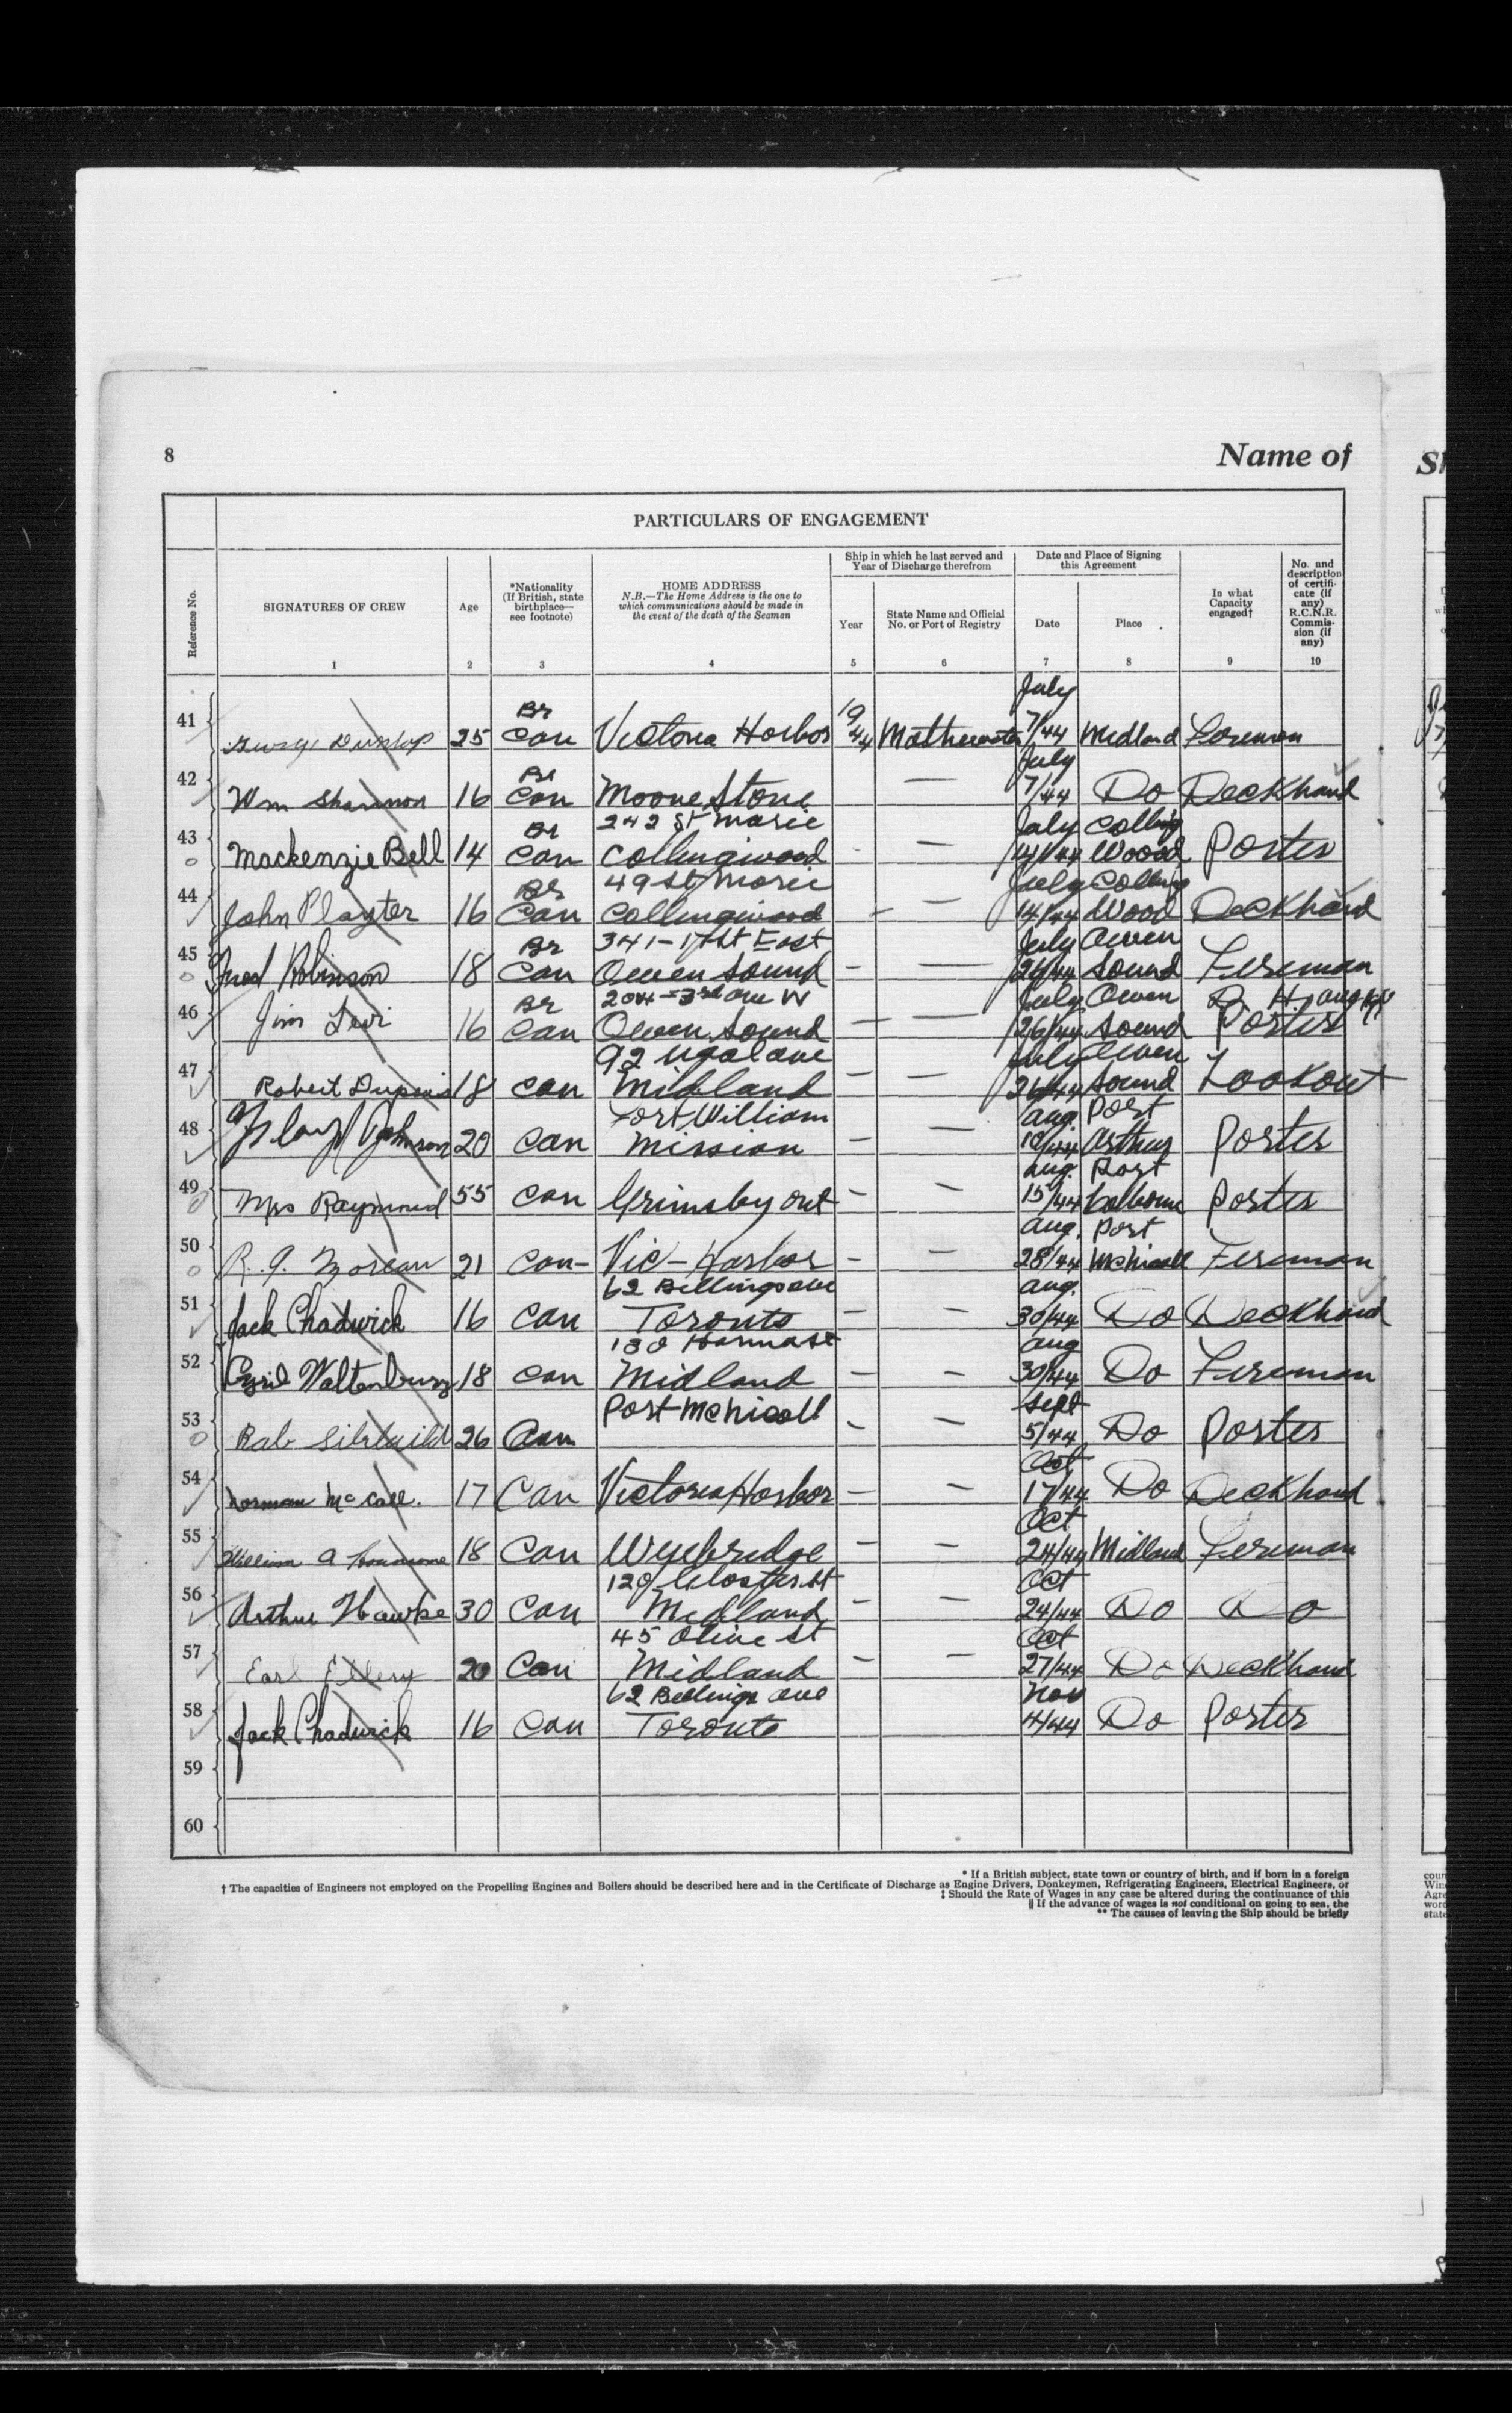 8
Name of
PARTICULARS OF ENGAGEMENT
Reference No.
SIGNATURES OF CREW
1
Age
2
*Nationality
(If British, state
birthplace—
see footnote)
3
HOME ADDRESS
N.B.—The Home Address is the one to
which communications should be made in
the event of the death of the Seaman
4
Ship in which he last served and
Year of Discharge therefrom
Year
5
State Name and Official
No. or Port of Registry
6
Date and Place of Signing
this Agreement
Date
7
Place
8
In what
Capacity
engaged†
9
No. and
description
of certifi-
cate (if
any)
R.C.N.R.
Commis-
sion (if
any)
10
41 Dunlop 25 Br Can Victoria Harbor 19 44 July 7/44 Midland Fireman
42 Wm Shannon 16 Br Can Moone Stone — July 7/44 Do Deckhand
43 Mackenzie Bell 14 Br Can 242 St Marie Collingwood - — July 14/44 Colling Woood Porter
44 John Playter 16 Br Can 49 St Marie Collingwood — — July 14/44 Colling Wood Deckhand
45 Fred Robinson 18 Br Can 341-17th St East Owen Sound — — July 26/44 Owen Sound Fireman
46 Jim Levi 16 Br Can 204-3rd Ave W Owen Sound — — July 26/44 Owen Sound D. H. Aug Porter
47 Robert Dupuis 18 Can 92 Ave Midland — — July 26/44 Owen Sound Lookout
48 Johnson 20 Can Fort William Mission — — Aug. 10/44 Port Arthur Porter
49 Mrs Raymond 55 Can Grimsby Ont — — Aug. 15/44 Port Colborne Porter
50 R. 21 Can- Vic-Harbor — — Aug. 28/44 Port McNicoll Fireman
51 Jack Chadwick 16 Can 62 Billings Ave Toronto — — Aug. 30/44 Do Deckhand
52 Cyril Waltenbury 18 Can 130 Midland — — Aug 30/44 Do Fireman
53 26 Can Port McNicoll - — Sept 5/44 Do Porter
54 Norman McCall. 17 Can Victoria Harbor — — Oct 17/44 Do Deckhand
55 William A 18 Can Wyebridge — — Oct 24/44 Midland Fireman
56 Arthur Hawke 30 Can 120 St Midland — — Oct 24/44 Do Do
57 Earl Ellery 20 Can 45 Olive St Midland — — Oct 27/44 Do Deckhand
58 Jack Chadwick 16 Can 62 Billings Ave Toronto Nov 4/44 Do Porter
59
60
* If a British subject, state town or country of birth, and if born in a foreign
† The capacities of Engineers not employed on the Propelling Engines and Boilers should be described here and in the Certificate of Discharge as Engine Drivers, Donkeymen, Refrigerating Engineers, Electrical Engineers, or
‡ Should the Rate of Wages in any case be altered during the continuance of this
‖ If the advance of wages is not conditional on going to sea, the
** The causes of leaving the Ship should be briefly